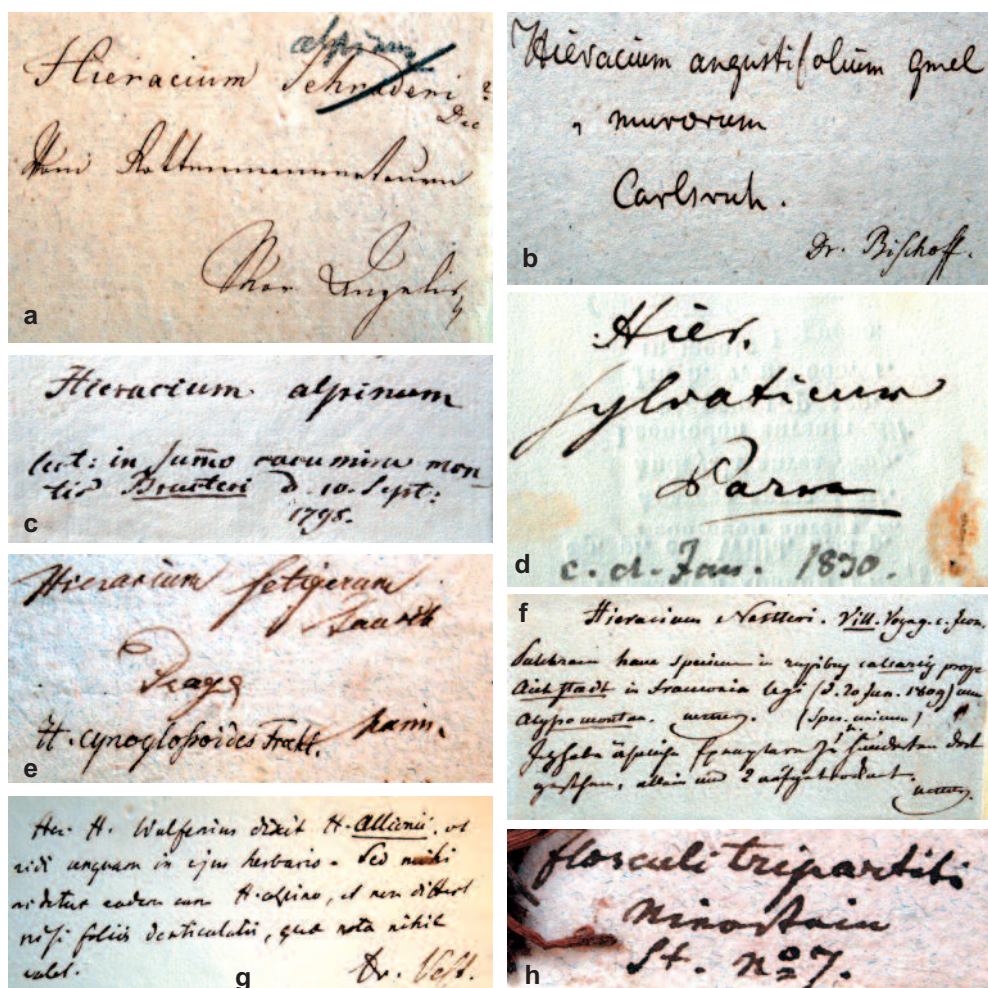 alpinum
Hieracium Schraderi ?
Dec
Vom Rottenmannertauern
Von Angelis
a
Hieracium angustifolium gmel
„ murorum
Carlsruh.
Dr. Bischoff.
b
Hieracium alpinum
lect: in sum̄o cacumine mon-
tis Bructeri d. 10. Sept:
1798.
c
Hier.
sylvaticum
Parva
c. d. Jan. 1830.
d
Hieracium setigerum
Tausch
Praga
H. cynoglossoides Froehl. hann.
e
f
Hieracium Nestleri. Vill. Voyag. c. Icon.
hanc specim in rupibus calcareis prope
Aichstadt in franconia legi (d. 20 Jun. 1809) cum
(Spec. unicum)
Ich habe
gesehen, allein nur 2
Her H. Wulfenius dixit H. Allionii, ut
vidi unquam in ejus herbario. Sed mihi
videtur eadem cum H. alpino, et non differt
nisi foliis denticulatis, quae nota nihil
valet.
Dr. Vest.
g
flosculi tripartiti
St. No 7.
h